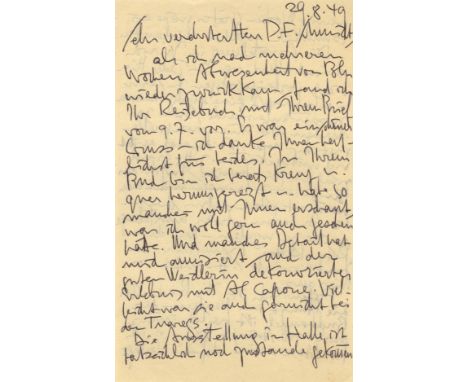 29.8.49
Sehr verehrter Herr D. F.
als ich nach mehreren
Wochen Abwesenheit von Bln
wieder zurück kam, fand ich
Ihr Reisebuch mit Ihrem Brief
vom 9.7. vor. Es war ein schöner
Gruss – ich danke Ihnen herz-
lichst für beides. In Ihrem
Buch bin ich bereits kreuz u.
quer herumgereist u. habe so
manches mit Ihnen geschaut,
was ich wohl gern auch gesehen
hätte. Und manches Detail hat
mich amüsiert auch der
guten
mit Al Capone. Viel-
leicht war sie auch bei
den
Die Ausstellung in Halle ist
tatsächlich noch zustande gekommen